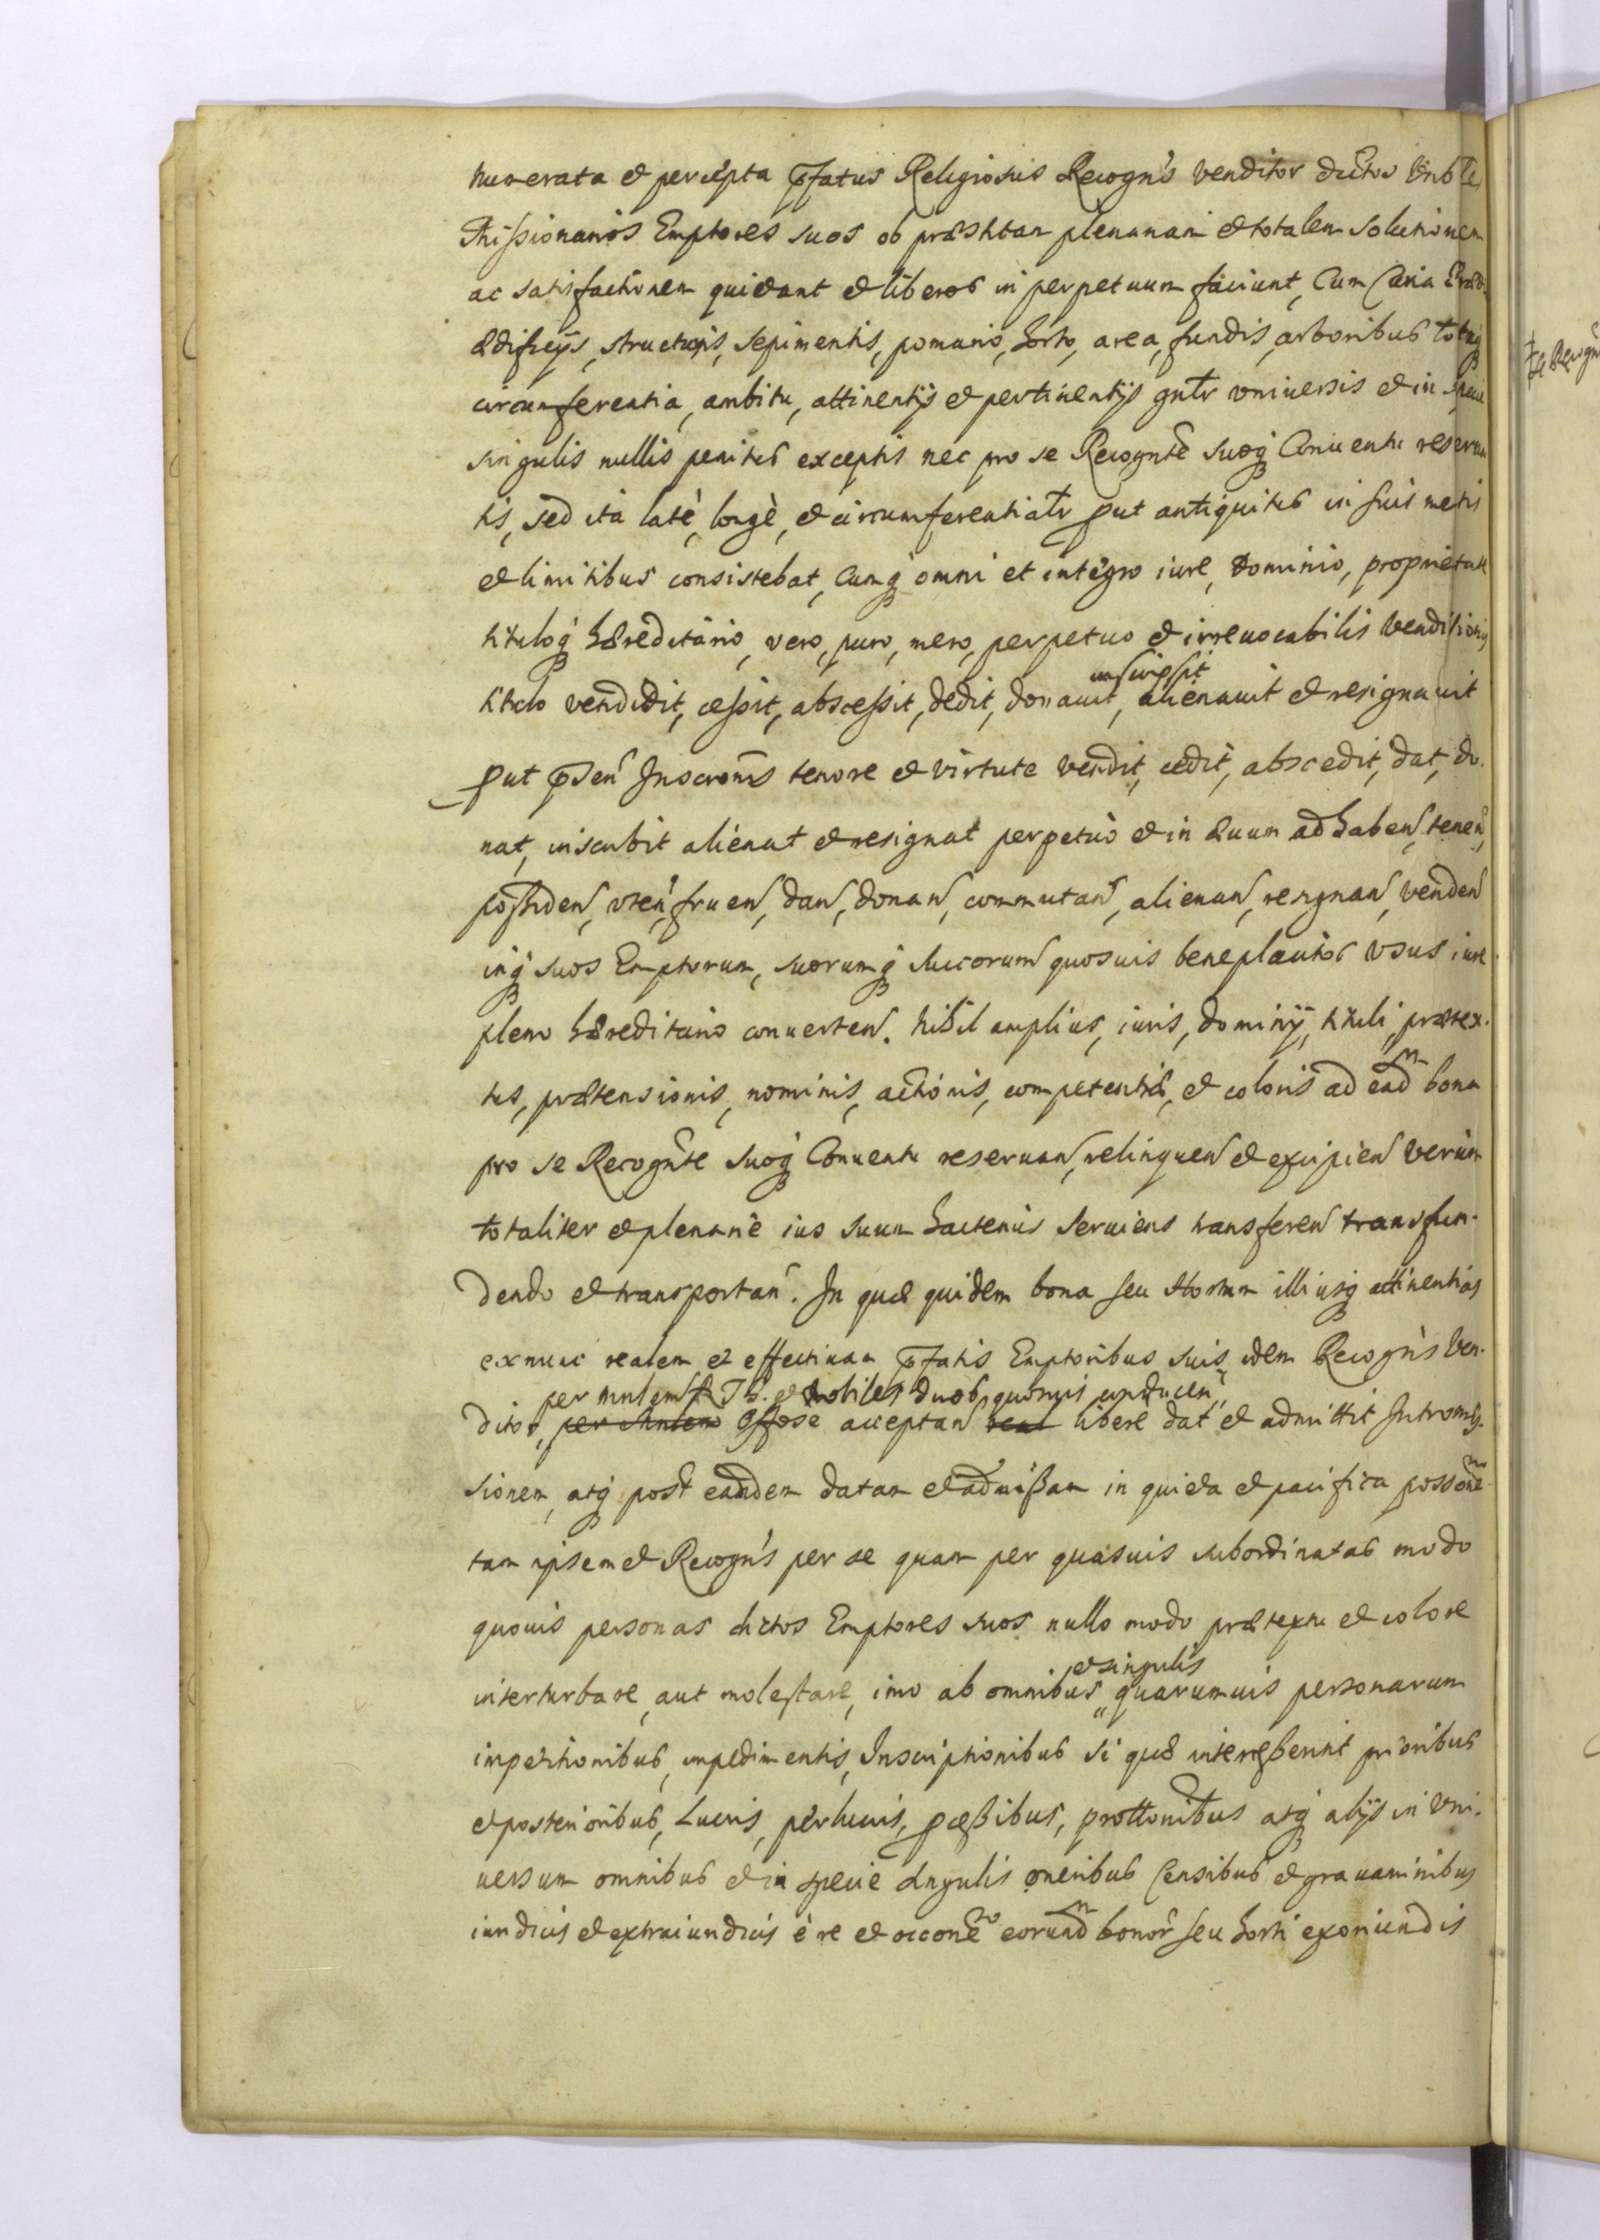 numerata et percepta pfatus Religiosus Recogns venditor dictos Vnbles
Missionarios Emptores suos ob præstitam plenariam et totalem solutionem
ac satisfactionem quietant et liberos in perpetuum faciunt, Cum Curia
ædificijs, structuris, sepimentis, pomario, horto, area, fundis, arboribus totaq
circumferentia, ambitu, attinentijs et pertinentijs gnlr vniuersis et in specie
singulis nullis penitus exceptis nec pro se Recognte suoq Conuentu reserua
tis, sed ita latè, longè, et circumferentialr put antiquitus in suis metis
et limitibus consistebat, Cumq omni et integro iure, Dominio, proprietate
tituloq hæreditario, vero, puro, mero, perpetuo et irreuocabilis venditionis
inscripsit
titulo vendidit, cessit, abscessit, dedit, donauit, alienauit et resignauit
put psen Inscronis tenore et virtute vendit, cedit, abscedit, dat, do-
nat, inscribit alienat et resignat perpetuò et in æuum ad haben, tenen,
possiden, vten, fruen, dan, donan, commutan, alienan, resignan, venden
inq suos Emptorum, suorumq succorum quosuis beneplacitos vsus iure
pleno hæreditario conuerten. Nihil amplius, iuris, dominij, tituli, prætex-
tus, prætensionis, nominis, actionis, competentiæ, et coloris ad eadm bona
pro se Recognte suoq Conuentu reseruan, relinquen et excipien verùm
totaliter et plenariè ius suum hactenus seruiens transferen transfun-
dendo et transportan. In quæ quidem bona seu Hortum illiusq attinentias
exnunc realem et effectiuam pfatis Emptoribus suis, idem Recogns Ven-
per mnlem R Th. et Nobiles duos quosuis conducen
ditor, per Mnlem Offose acceptan real libere dat et admittit Intromis-
sionem, atq post eandem datam et admissam in quieta et pacifica possone
tam ipsemet Recogns per se quam per quasuis subordinatas modo
quouis personas dictos Emptores suos nullo modo prætextu et colore
et singulis
interturbare, aut molestare, imo ab omnibus quarumuis personarum
impetitionibus, impedimentis, Inscriptionibus si quæ interesserint prioribus
et posterioribus, Lucris, perlucris, pcessibus, prottonibus atq alijs in vni-
uersum omnibus et in specie singulis oneribus Censibus et grauaminibus
iuridicis et extraiuridicis è re et occone eorundm bonor seu horti exoriundis